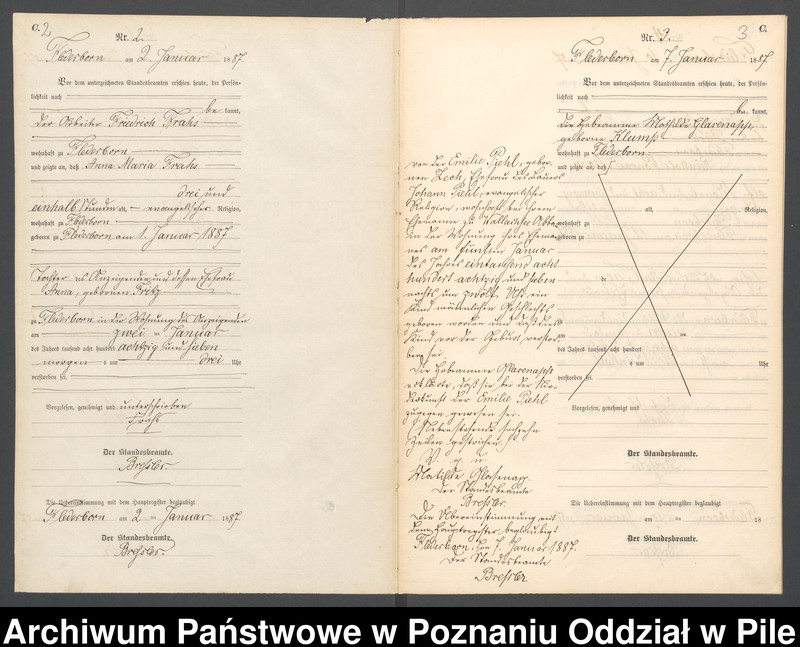 C. 2
Nr. 2.
Flederborn am 2. Januar 1887.
Vor dem unterzeichneten Standesbeamten erschien heute, der Persön-
lichkeit nach
be kannt,
der Arbeiter Friedrich Frahs
wohnhaft zu Flederborn
und zeigte an, daß Anna Maria Frahs
drei und
einhalb Stunden alt, evangelischer Religion,
wohnhaft zu Flederborn
geboren zu Flederborn am 1. Januar 1887
Tochter des Anzeigenden und dessen Ehefrau
Anna, gebornen Fritz
zu Flederborn in der Wohnung des Anzeigenden
am zwei ten Januar
des Jahres tausend acht hundert achtzig und sieben
morgens um drei Uhr
verstorben sei.
Vorgelesen, genehmigt und unterschrieben
Frahs
Der Standesbeamte.
Bressler
Die Uebereinstimmung mit dem Hauptregister beglaubigt
Flederborn am 2 ten Januar 1887
Der Standesbeamte.
Bressler.
3 C.
Nr. 3.
Flederborn am 7. Januar 1887
Vor dem unterzeichneten Standesbeamten erschien heute, der Persön-
lichkeit nach
be kannt,
die Hebeamme Mathilde Glasenapp,
geborne Klump
wohnhaft zu Flederborn
und zeigte an, daß
von der Emilie Piehl, gebor-
nen Zech, Ehefrau des Bauers
Johann Piehl, evangelischer
Religion, wohnhaft bei ihrem
Ehemanne zu
in der Wohnung ihres Eheman-
nes am fünften Januar
des Jahres eintausend acht
hundert achtzig und sieben
nachts um zwölf Uhr ein
Kind männlichen Geschlechts
geboren worden und daß das
Kind vor der Geburt verstor-
ben sei.
Die Hebeamme Glasenapp
erklärte, daß sie bei der Nie-
derkunft der Emilie Piehl
zugegen gewesen sei.
Nebenstehende sechzehn
Zeilen gestrichen.
V. g. u.
Matilde Glasenapp
Der Standesbeamte
Bressler.
Die Übereinstimmung mit
dem Hauptregister beglaubigt
Flederborn, den 7. Januar 1887.
Der Standesbeamte
Bressler
alt, Religion,
wohnhaft zu
geboren zu
de
am ten
des Jahres tausend acht hundert
um Uhr
verstorben sei.
Vorgelesen, genehmigt und
Der Standesbeamte.
Die Uebereinstimmung mit dem Hauptregister beglaubigt
am ten 18
Der Standesbeamte.
Archiwum Państwowe w Poznaniu Oddział w Pile